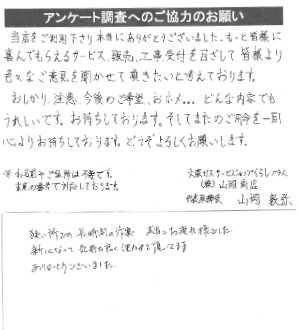 アンケート調査へのご協力のお願い
当店をご利用下さり本当にありがとうございました。もっと皆様に
喜んでもらえるサービス、販売、工事受付を目ざして皆様より
色々なご意見を聞かせて頂きたいと考えております。
おしかり、注意、今後のご希望、おホメ…どんな内容でも
うれしいです。お待ちしております。そしてまたのご用命を一同
心よりお待ちしております。どうぞよろしくお願いします。
※お名前やご住所は不要です。
裏の番号で対応しております。
大阪ガスサービスショップくらしプラス
(株)山岡商店
代表取締役 山岡
狭い所での長時間の作業 本当にお疲れ様でした
新しくなって気持ち良く使わせて頂いてます
ありがとうございました。